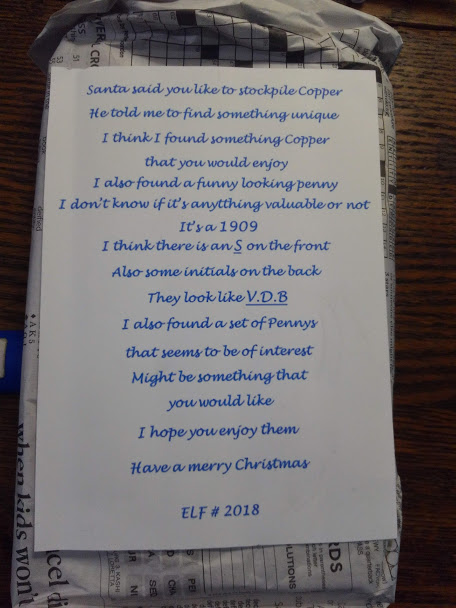 Santa said you like to stockpile Copper
He told me to find something unique
I think I found something Copper
that you would enjoy
I also found a funny looking penny
I don't know if it's anytthing valuable or not
It's a 1909
I think there is an S on the front
Also some initials on the back
They look like V.D.B
I also found a set of Pennys
that seems to be of interest
Might be something that
you would like
I hope you enjoy them
Have a merry Christmas
ELF # 2018
when kids won'
RDS
OLUTIONS